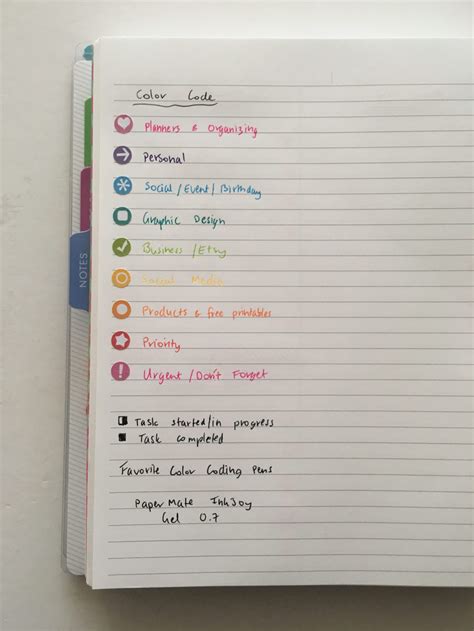 Color Code
Planners & Organizing
Personal
Social/Event/Birthday
Graphic Design
Business/Etsy
Social Media
Products & free printables
Priority
Urgent/Don't Forget
Task started/in progress
Task completed
Favorite Color Coding Pens
Paper Mate InkJoy
Gel 0.7
NOTES